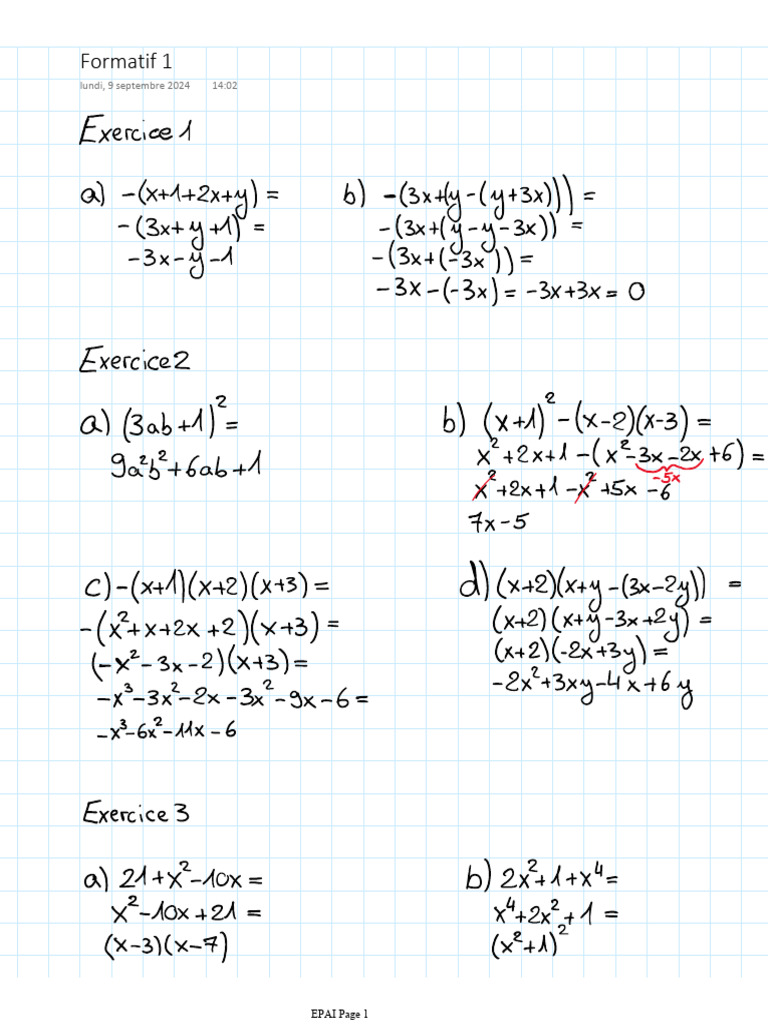 Formatif 1
lundi, 9 septembre 2024 14:02
Exercice 1
a) -(x+1+2x+y) =
-(3x+y+1) =
-3x-y-1
b) -(3x+(y-(y+3x))) =
-(3x+(y-y-3x)) =
-(3x+(-3x)) =
-3x-(-3x) = -3x+3x = 0
Exercice 2
a) (3ab+1)² =
9a²b²+6ab+1
b) (x+1)²-(x-2)(x-3) =
x²+2x+1-(x²-3x-2x+6) =
-5x
x²+2x+1-x²+5x-6
7x-5
c) -(x+1)(x+2)(x+3) =
-(x²+x+2x+2)(x+3) =
(-x²-3x-2)(x+3) =
-x³-3x²-2x-3x²-9x-6 =
-x³-6x²-11x-6
d) (x+2)(x+y-(3x-2y)) =
(x+2)(x+y-3x+2y) =
(x+2)(-2x+3y) =
-2x²+3xy-4x+6y
Exercice 3
a) 21+x²-10x =
x²-10x+21 =
(x-3)(x-7)
b) 2x²+1+x⁴ =
x⁴+2x²+1 =
(x²+1)²
EPAI Page 1